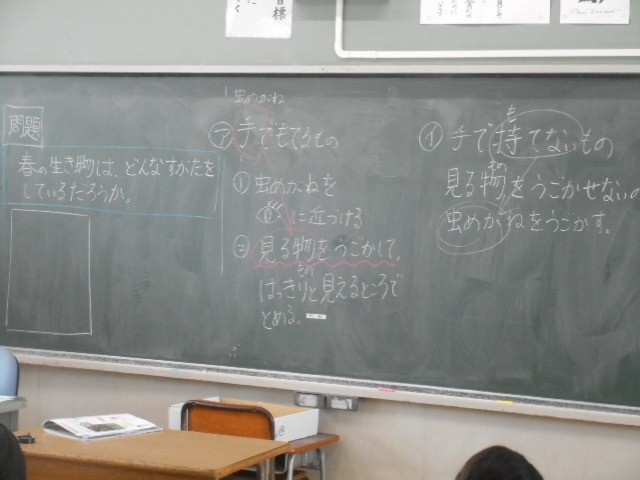 問題
春の生き物は、どんなすがたを
しているだろうか。
虫めがね
㋐ 手でもてるもの
① 虫めがねを
目に近づける
② 見る物をうごかして、
はっきりと見えるところで
とめる。
㋑ 手で持てないもの
も
見る物をうごかせないの
もの
虫めがねをうごかす。
目標